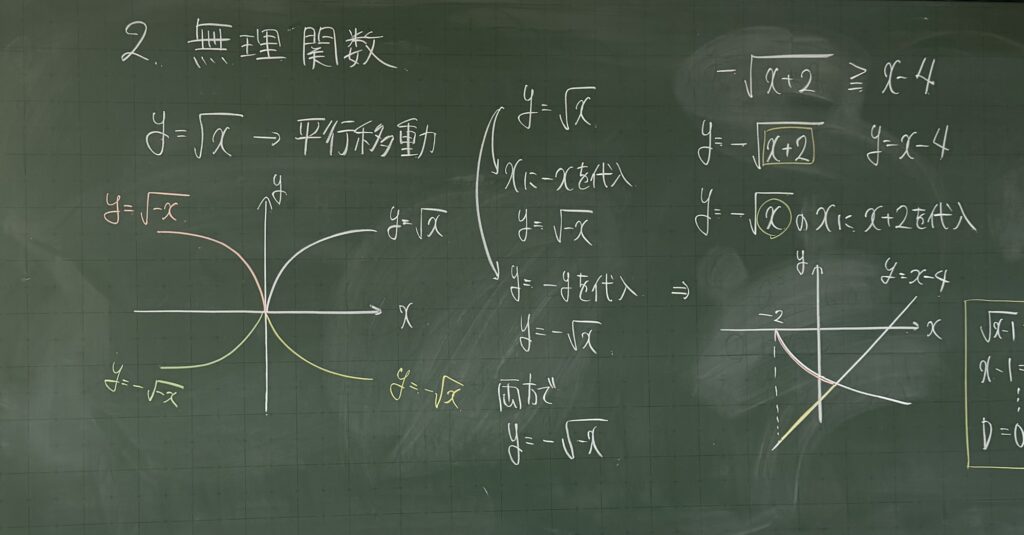 2. 無理関数
y=√x → 平行移動
y=√-x
y
y=√x
x
y=-√-x
y=-√x
y=√x
xに-xを代入
y=√-x
y=-yを代入 ⇒
y=-√x
両方で
y=-√-x
-√x+2 ≧ x-4
y=-√x+2 y=x-4
y=-√xのxにx+2を代入
y
y=x-4
-2
x
√x-1
x-1=
⋮
D=0